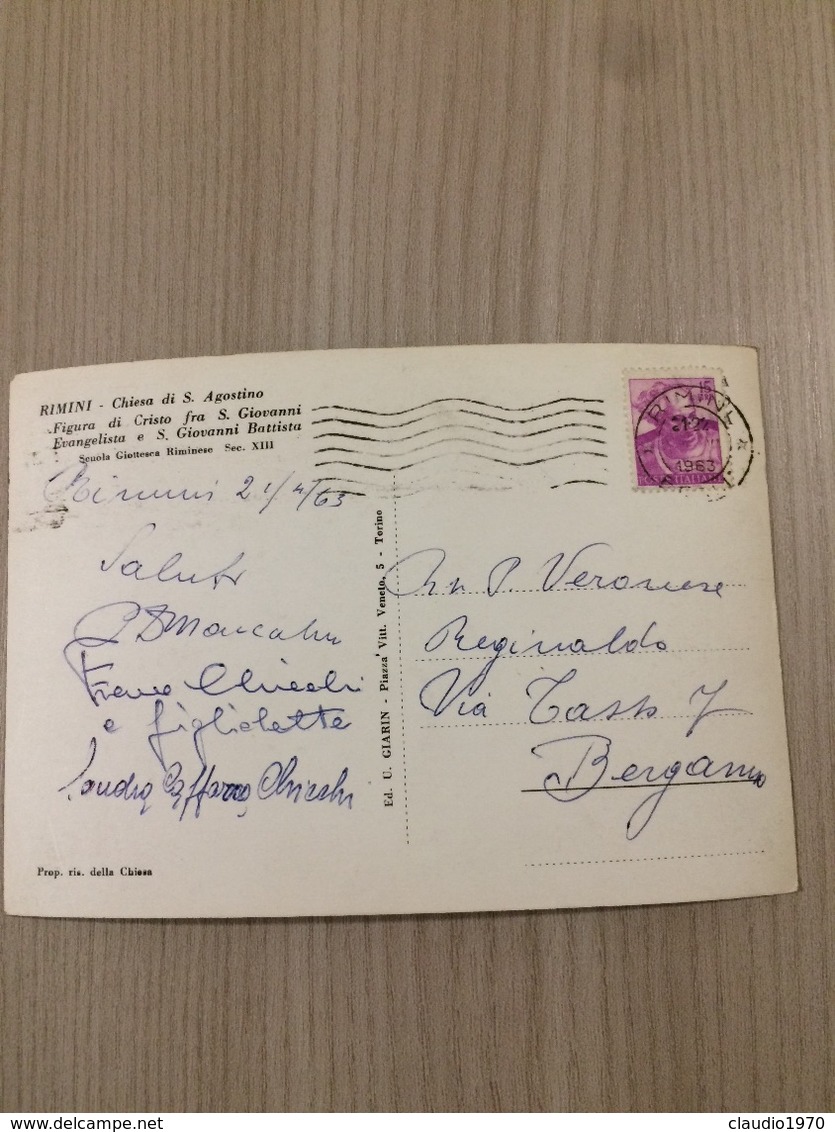 RIMINI - Chiesa di S. Agostino
Figura di Cristo fra S. Giovanni
Evangelista e S. Giovanni Battista
Scuola Giottesca Riminese Sec. XIII
Rimini 21/4/63
Saluti
e figliolette
Prop. ris. della Chiesa
Ed. U. GIARIN - Piazza' Vitt. Veneto, 5 - Torino
15
RIMINI
1963
POSTE ITALIANE
P. Veronese
Reginaldo
Via Tasso 7
Bergamo
delcampe.net
claudio1970